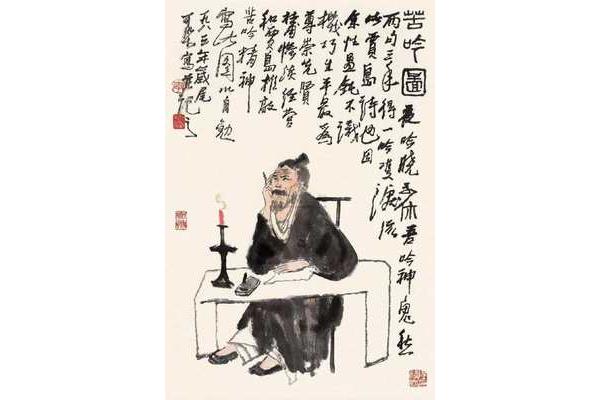 苦吟圖 夜吟曉不休苦吟神鬼愁
兩句三年得一吟雙淚流
此賈島詩也因
余性愚鈍不識
機巧生平最為
尊崇先賢
杜甫慘淡經營
和賈島推敲
苦吟精神
寫此圖以自勉
一九八三年歲尾
可染寫並記之